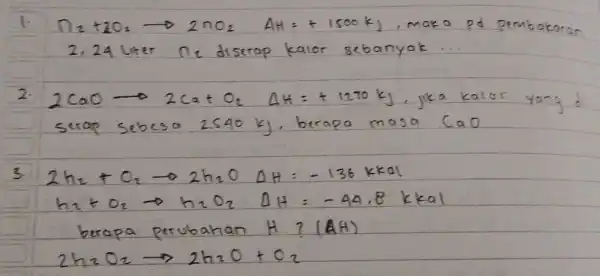 1. n₂ + 2O₂ → 2nO₂ ΔH = + 1500 kj, maka pd pembakaran
2,24 Liter n₂ diserap kalor sebanyak ...
2. 2CaO → 2Ca + O₂ ΔH = + 1270 kj, jika kalor yang d
serap sebesa 2540 kj, berapa masa CaO
3. 2h₂ + O₂ → 2h₂O ΔH = - 136 kkal
h₂ + O₂ → h₂O₂ ΔH = - 44,8 kkal
berapa perubahan H ? (ΔH)
2h₂O₂ → 2h₂O + O₂